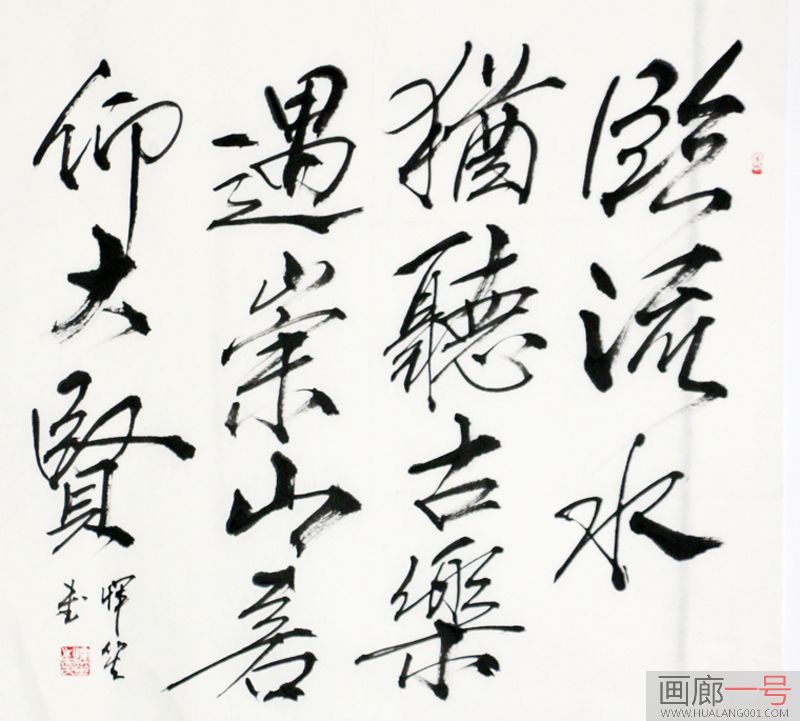 臨流水
猶聽古樂
遇崇山若
仰大賢
画廊一号
WWW.HUALANG001.COM